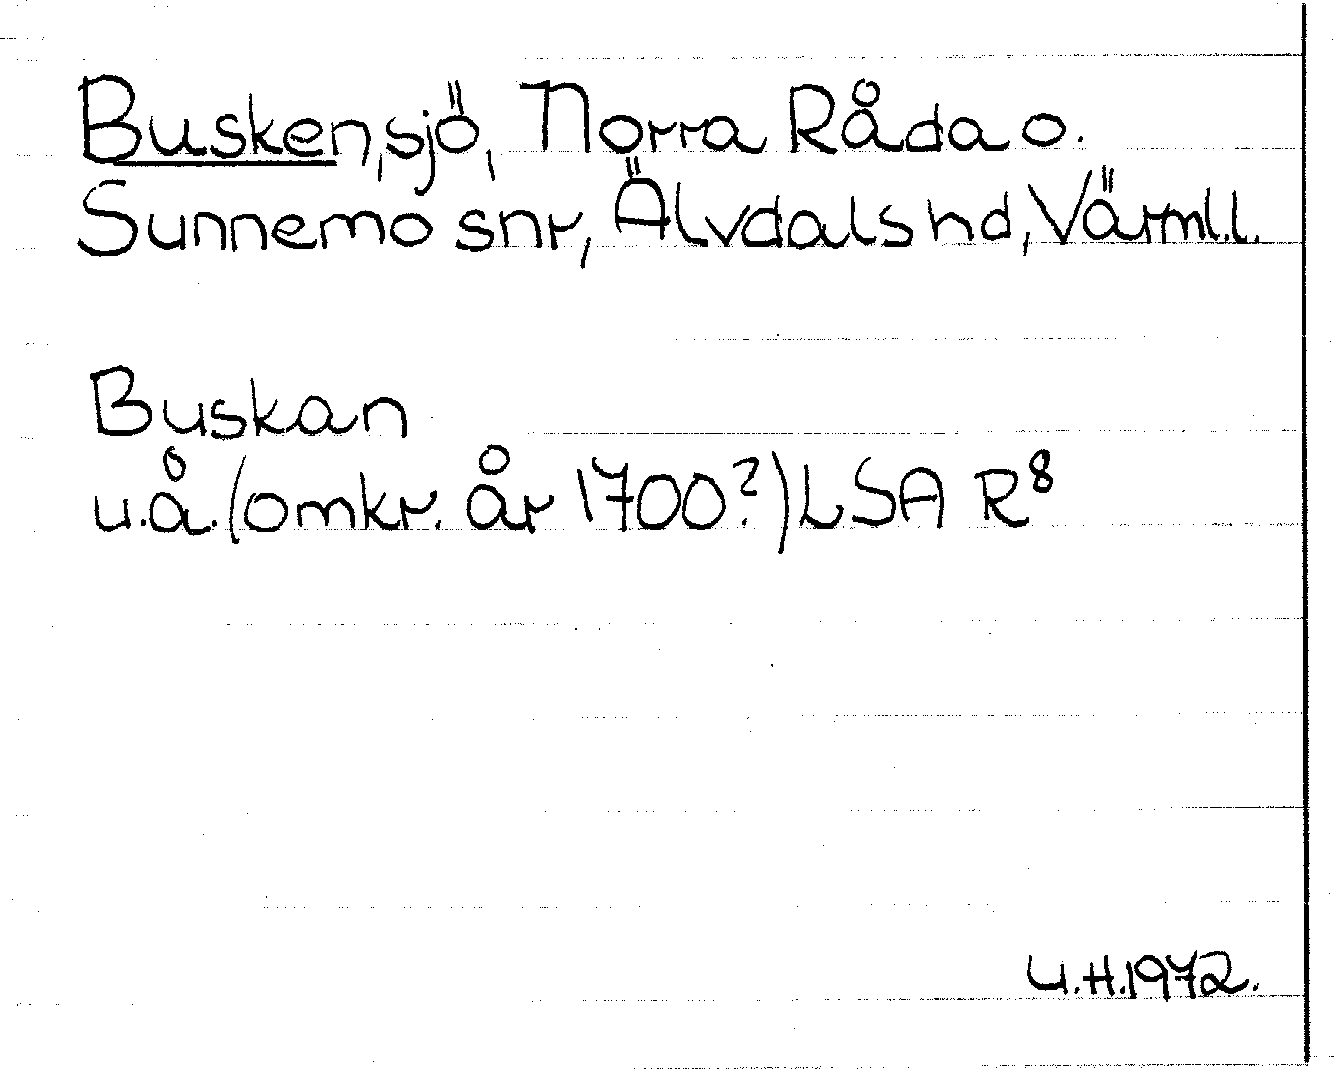 Busken, sjö, Norra Råda o.
Sunnemo snr, Älvdals hd, Värml.l.
Buskan
u.å. (omkr. år 1700?) LSA R8
U.H.1972.